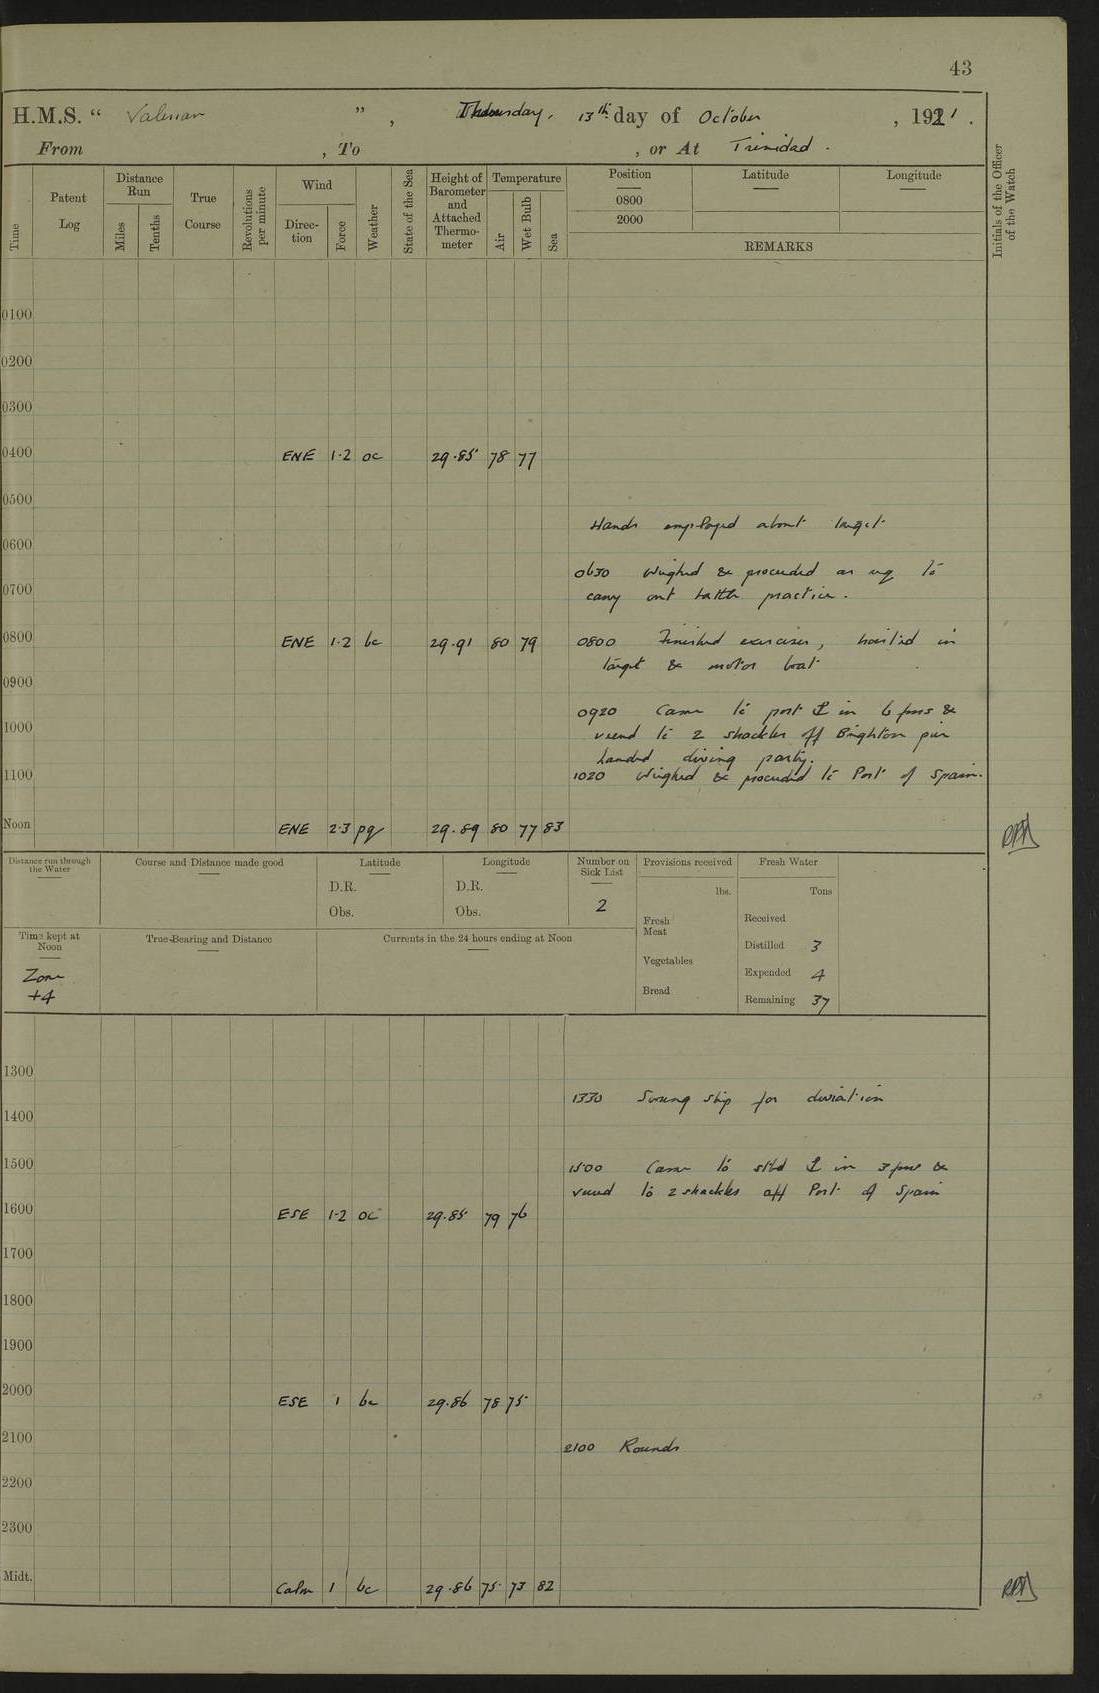 43
H.M.S. " Valerian " , Thursday, 13th day of October , 1921 .
From , To , or At Trinidad .
Time
Patent Log
Distance Run
Miles
Tenths
True Course
Revolutions per minute
Wind
Direc-tion
Force
Weather
State of the Sea
Height of Barometer and Attached Thermo-meter
Temperature
Air
Wet Bulb
Sea
Position
0800
2000
Latitude
Longitude
REMARKS
Initials of the Officer of the Watch
0100
0200
0300
0400 ENE 1·2 oc 29·85 78 77
0500
Hands employed about target
0600
0630 Weighed & proceeded as req to
0700
carry out battle practice.
0800 ENE 1·2 bc 29·91 80 79 0800 Finished exercises, hoisted in
target & motor boat
0900
0920 Came to port ⚓ in 6 fms &
1000
veered to 2 shackles off Brighton pier
Landed diving party.
1100 1020 Weighed & proceeded to Port of Spain.
Noon ENE 2·3 pq 29·89 80 77 83
Distance run through the Water
Course and Distance made good
Latitude
D.R.
Obs.
Longitude
D.R.
Obs.
Number on Sick List
2
Provisions received
lbs.
Fresh Meat
Vegetables
Bread
Fresh Water
Tons
Received
Distilled 3
Expended 4
Remaining 37
Time kept at Noon
Zone
+4
True Bearing and Distance
Currents in the 24 hours ending at Noon
1300
1330 Swung ship for deviation
1400
1500 1500 Came to stbd ⚓ in 3 fms &
veered to 2 shackles off Port of Spain
1600 ESE 1·2 oc 29·85 79 76
1700
1800
1900
2000 ESE 1 bc 29·86 78 75
2100 2100 Rounds
2200
2300
Midt. Calm 1 bc 29·86 75 73 82